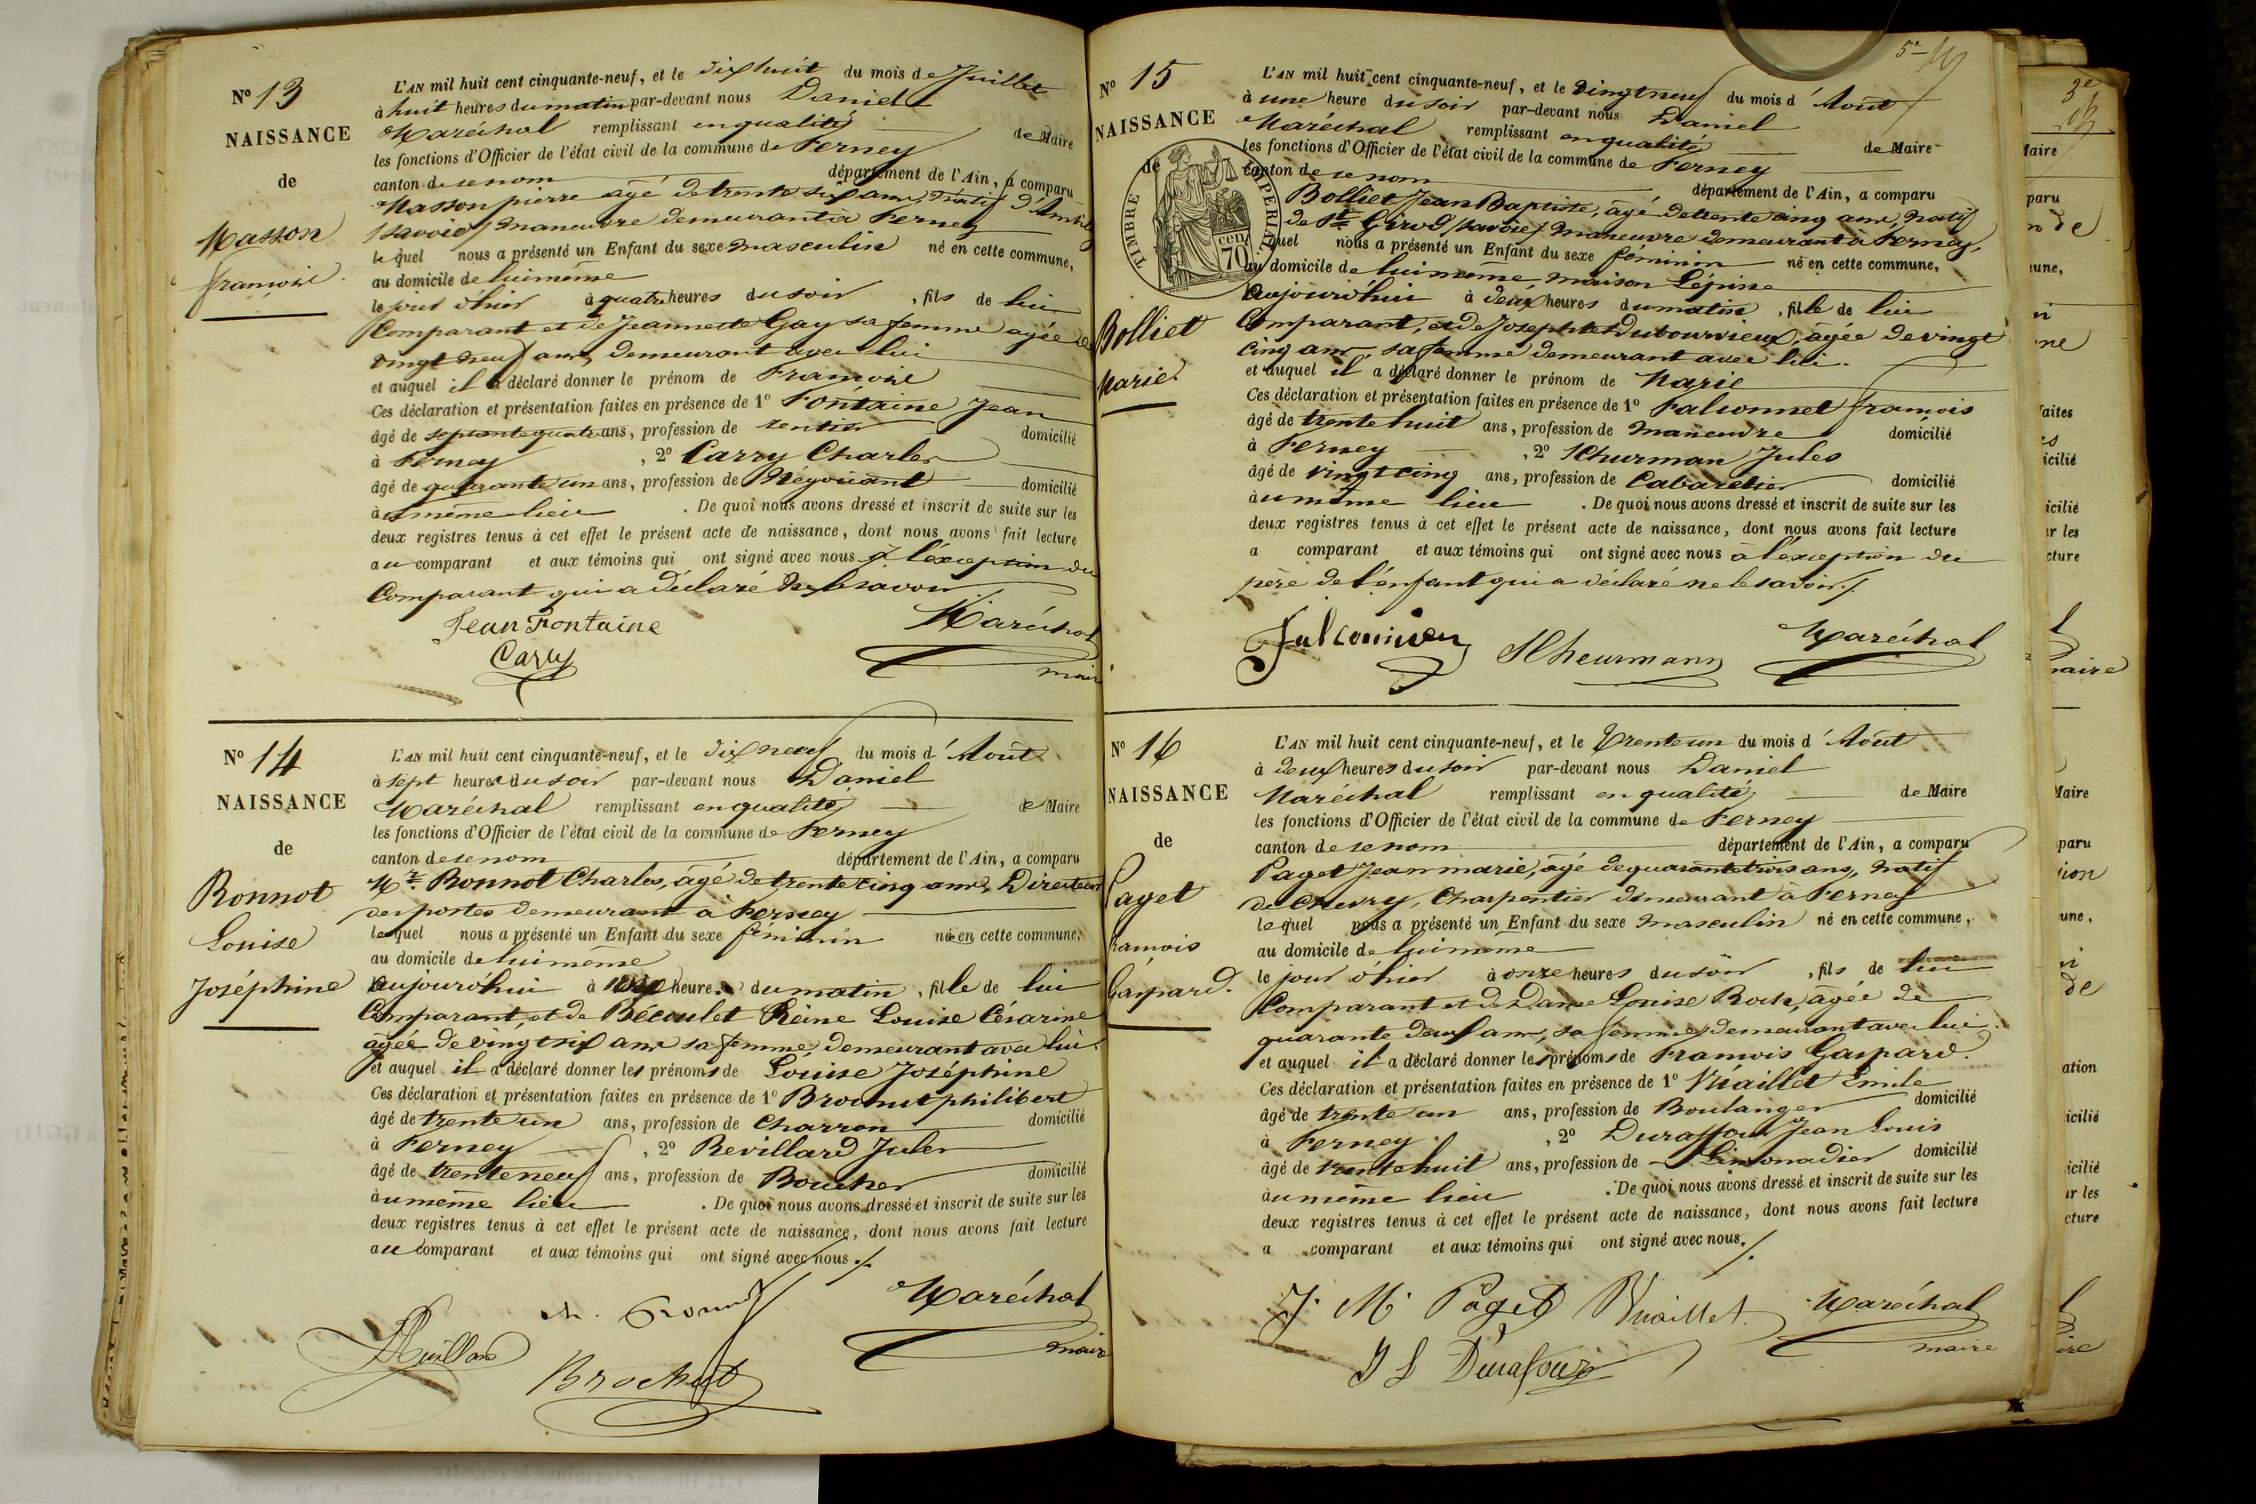 N° 13
NAISSANCE
de
Masson
françois.
L'AN mil huit cent cinquante-neuf, et le dix huit du mois de Juillet
à huit heures du matin par-devant nous Daniel
Maréchal remplissant en qualité de Maire
les fonctions d'Officier de l'état civil de la commune de Ferney
canton de ce nom département de l'Ain, a comparu
Masson pierre âgé de trente six ans, natif
savoie / manœuvre demeurant à Ferney
lequel nous a présenté un Enfant du sexe masculin né en cette commune,
au domicile de lui même
le jour d'hier à quatre heures du soir, fils de lui
Comparant et de Jeannette Gay sa femme agée de
vingt neuf ans, demeurant avec lui
et auquel il a déclaré donner le prénom de François
Ces déclaration et présentation faites en présence de 1° Fontaine Jean
âgé de septante quatre ans, profession de rentier domicilié
à Ferney, 2° Carry Charles
âgé de quarante un ans, profession de Négociant domicilié
au même lieu. De quoi nous avons dressé et inscrit de suite sur les
deux registres tenus à cet effet le présent acte de naissance, dont nous avons fait lecture
au comparant et aux témoins qui ont signé avec nous à l'éxception du
Comparant qui a déclaré ne le savoir
Jean Fontaine
Maréchal
Carry
maire
N° 14
NAISSANCE
de
Bonnot
Louise
Joséphine
L'AN mil huit cent cinquante-neuf, et le dix neuf du mois d'Août
à sept heures du soir par-devant nous Daniel
Maréchal remplissant en qualité de Maire
les fonctions d'Officier de l'état civil de la commune de Ferney
canton de ce nom département de l'Ain, a comparu
Mr. Bonnot Charles, âgé de trente cinq ans, Directeur
des postes demeurant à Ferney
lequel nous a présenté un Enfant du sexe féminin née en cette commune,
au domicile de lui même
aujourd'hui à heure du matin, fille de lui
Comparant, et de Bécoulet Reine Louise Césarine
agée de vingt six ans sa femme, demeurant avec lui
et auquel il a déclaré donner les prénoms de Louise Joséphine
Ces déclaration et présentation faites en présence de 1° Brochut philibert
âgé de trente un ans, profession de Charron domicilié
à Ferney, 2° Revillard Jules
âgé de trente neuf ans, profession de Boucher domicilié
au même lieu. De quoi nous avons dressé et inscrit de suite sur les
deux registres tenus à cet effet le présent acte de naissance, dont nous avons fait lecture
au comparant et aux témoins qui ont signé avec nous./.
Maréchal
maire
Brochut
5e
N° 15
NAISSANCE
de
TIMBRE IMPERIAL
70 cen
Bolliet
Marie.
L'AN mil huit cent cinquante-neuf, et le Vingt neuf du mois d'Août
à une heure du soir par-devant nous Daniel
Maréchal remplissant en qualité de Maire
les fonctions d'Officier de l'état civil de la commune de Ferney
canton de ce nom département de l'Ain, a comparu
Bolliet Jean Baptiste, âgé de trente cinq ans, natif
de St Girod / savoie / manœuvre demeurant à Ferney,
lequel nous a présenté un Enfant du sexe féminin né en cette commune,
au domicile de lui même, maison Lépine
aujourd'hui à deux heures du matin, fille de lui
Comparant, et de Josephte Dubourvieux, âgée de vingt
cinq ans, sa femme demeurant avec lui.
et auquel il a déclaré donner le prénom de Marie
Ces déclaration et présentation faites en présence de 1° Falconnet françois
âgé de trente huit ans, profession de manœuvre domicilié
à Ferney, 2° Schurman Jules
âgé de vingt cinq ans, profession de Cabaretier domicilié
au même lieu. De quoi nous avons dressé et inscrit de suite sur les
deux registres tenus à cet effet le présent acte de naissance, dont nous avons fait lecture
a comparant et aux témoins qui ont signé avec nous à l'éxception du
père de l'enfant qui a déclaré ne le savoir./.
Scheurmann
Maréchal
N° 16
NAISSANCE
de
Paget
François
Gaspard.
L'AN mil huit cent cinquante-neuf, et le Trente un du mois d'Août
à deux heures du soir par-devant nous Daniel
Maréchal remplissant en qualité de Maire
les fonctions d'Officier de l'état civil de la commune de Ferney
canton de ce nom département de l'Ain, a comparu
Paget Jean marie, âgé de quarante trois ans, natif
de Chevry, Charpentier demeurant à Ferney
lequel nous a présenté un Enfant du sexe masculin né en cette commune,
au domicile de lui même
le jour d'hier à onze heures du soir, fils de lui
Comparant et de Dame Louise Roch, âgée de
quarante deux ans, sa femme, demeurant avec lui.
et auquel il a déclaré donner les prénoms de François Gaspard.
Ces déclaration et présentation faites en présence de 1° Viaillet Emile
âgé de trente un ans, profession de Boulanger domicilié
à Ferney, 2° Duraffour Jean Louis
âgé de trente huit ans, profession de Limonadier domicilié
au même lieu. De quoi nous avons dressé et inscrit de suite sur les
deux registres tenus à cet effet le présent acte de naissance, dont nous avons fait lecture
a comparant et aux témoins qui ont signé avec nous./.
J. M. Paget
Maréchal
maire
J L Durafour